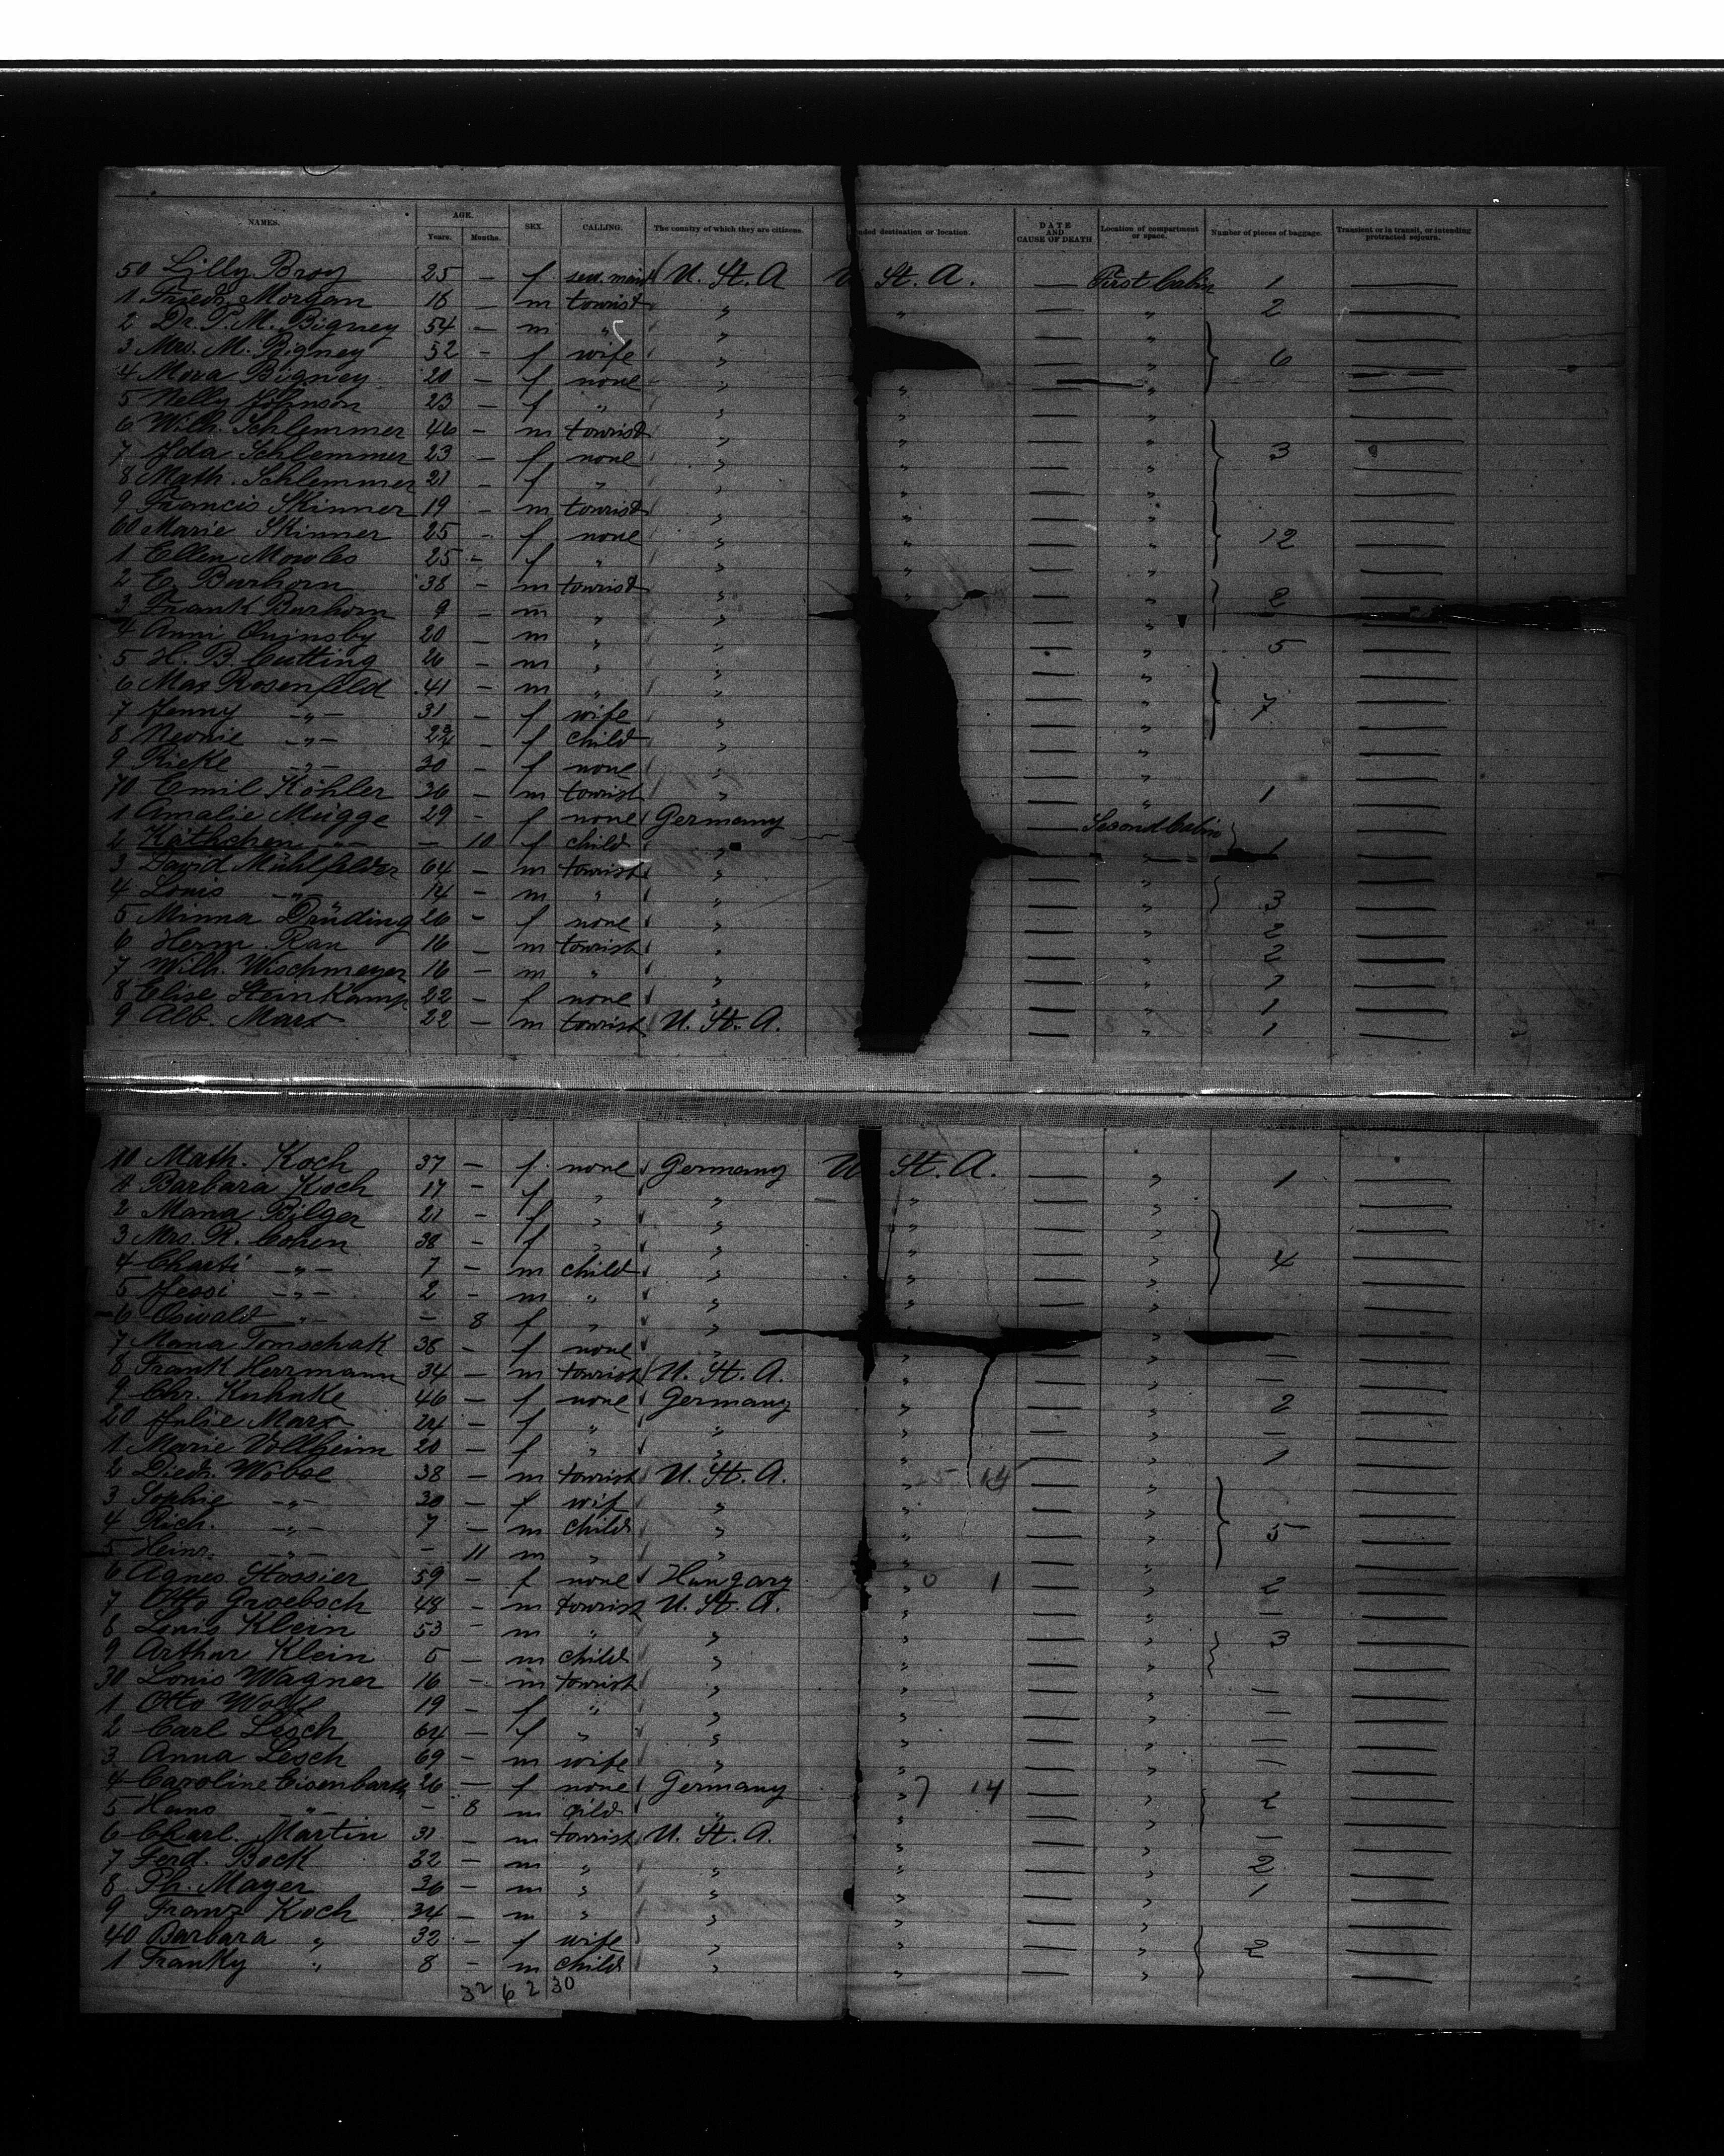 NAMES. AGE. Years. Months. SEX. CALLING. The country of which they are citizens. nded destination or location. DATE AND CAUSE OF DEATH Location of compartment or space. Number of pieces of baggage. Transient or in transit, or intending protracted sojourn.
50 Lilly Broy 25 — f maid U. St. A U St. A. — First Cabin 1 —
1 Friedr. Morgan 16 — m tourist „ „ — „ 2 —
2 Dr. P. M. Bigney 54 — m „ „ — „ —
3 Mrs. M. Bigney 52 — f wife „ — „ 6 —
4 Mora Bigney 20 — f none „ „ — „ —
5 Nelly Johnson 23 — f „ „ „ — „ —
6 Wilh. Schlemmer 46 — m tourist „ „ — „ —
7 Ida Schlemmer 23 — f none „ „ — „ 3 —
8 Math. Schlemmer 21 — f „ „ „ — „ —
9 Francis Skinner 19 — m tourist „ „ — „ —
60 Marie Skinner 25 — f none „ „ — „ 12 —
1 Ellen Mowles 25 — f „ „ „ — „ —
2 E. Burhorn 38 — m tourist „ „ — „ 2 —
3 Frank Burhorn 9 — m „ „ — „ —
4 Anni Quinsby 20 — m „ „ — „ 5 —
5 H. B. Cutting 26 — m „ „ — „ —
6 Max Rosenfeld 41 — m „ „ — „ —
7 Jenny —„— 31 — f wife „ — „ 7 —
8 Neonie —„— — f child „ — „ —
9 Rieke —„— 30 — f none „ — „ —
70 Emil Köhler 36 — m tourist „ — „ 1 —
1 Amalie Mügge 29 — f none Germany — Second Cabin —
2 Käthchen —„— — 10 f child „ — „ 1 —
3 David Mühlfelder 64 — m tourist „ — „ —
4 Louis —„— 14 — m „ „ — „ 3 —
5 Minna Drüding 26 — f none „ — „ 2 —
6 Herm. Rau 16 — m tourist „ — „ 2 —
7 Wilh. Wischmeyer 16 — m „ „ — „ 1 —
8 Elise Steinkamp 22 — f none „ — „ 1 —
9 Alb. Marx 22 — m tourist U. St. A. — „ 1 —
10 Math. Koch 37 — f. none Germany U St. A. — „ 1 —
1 Barbara Koch 17 — f „ „ „ — „ —
2 Maria Bilger 21 — f „ „ „ — „ —
3 Mrs. R. Cohen 38 — f „ „ „ — „ —
4 Charli —„— 7 — m child „ „ — „ 4 —
5 Jessi —„— 2 — m „ „ „ — „ —
6 Oswald „— — 8 f „ „ — „ —
7 Maria Tomschak 38 — f none „ „ — „ — —
8 Frank Herrmann 34 — m tourist U. St. A. „ — „ — —
9 Chr. Kuhnke 46 — f none Germany „ — „ 2 —
20 Julie Marx 24 — f „ „ „ — „ — —
1 Marie Vollheim 20 — f „ „ „ — „ 1 —
2 Diedr. Wöbse 38 — m tourist U. St. A. „ — „ —
3 Sophie —„— 30 — f wif „ „ — „ —
4 Rich. —„— 7 — m child „ „ — „ 5 —
5 Heinr. —„— — 11 m „ „ — „ —
6 Agnes Stossier 59 — f none Hungary „ 0 1 — „ 2 —
7 Otto Groebsch 48 — m tourist U. St. A. „ — „ — —
8 Louis Klein 53 — m „ „ „ — „ 3 —
9 Arthur Klein 5 — m child „ „ — „ —
30 Louis Wagner 16 — m tourist „ „ — „ — —
1 Otto Wolff 19 — f „ „ „ — „ — —
2 Carl Lesch 64 — f „ „ „ — „ — —
3 Anna Lesch 69 — m wife „ „ — „ — —
4 Caroline Eisenbarth 26 — f none Germany „ 7 14 — „ 2 —
5 Hans „ — 8 m „ „ — „ —
6 Charl. Martin 31 — m tourist U. St. A. „ — „ — —
7 Ferd. Bock 32 — m „ „ „ — „ 2 —
8 Ph. Mayer 36 — m „ „ „ — „ 1 —
9 Franz Koch 34 — m „ „ „ — „ —
40 Barbara „ 32 — f wife „ „ — „ 2 —
1 Franky „ 8 — m child „ „ — „ —
32 6 2 30